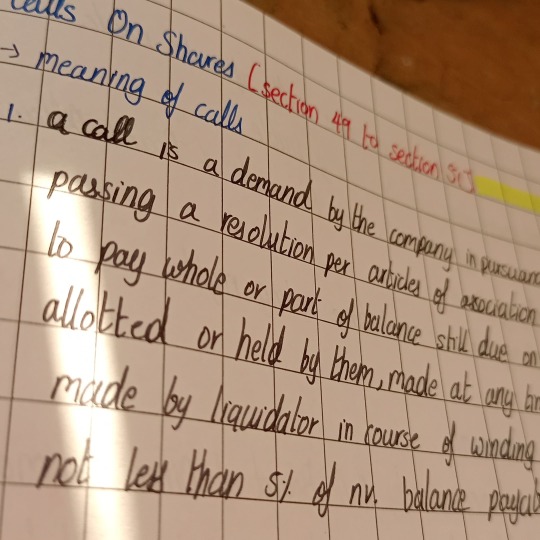 Calls On Shares (section 49 to section 51)
→ meaning of calls
1. a call is a demand by the company in pursuan
passing a resolution per articles of association
to pay whole or part of balance still due on
allotted or held by them, made at any
made by liquidator in course of winding
not less than 5% of nv. balance payab